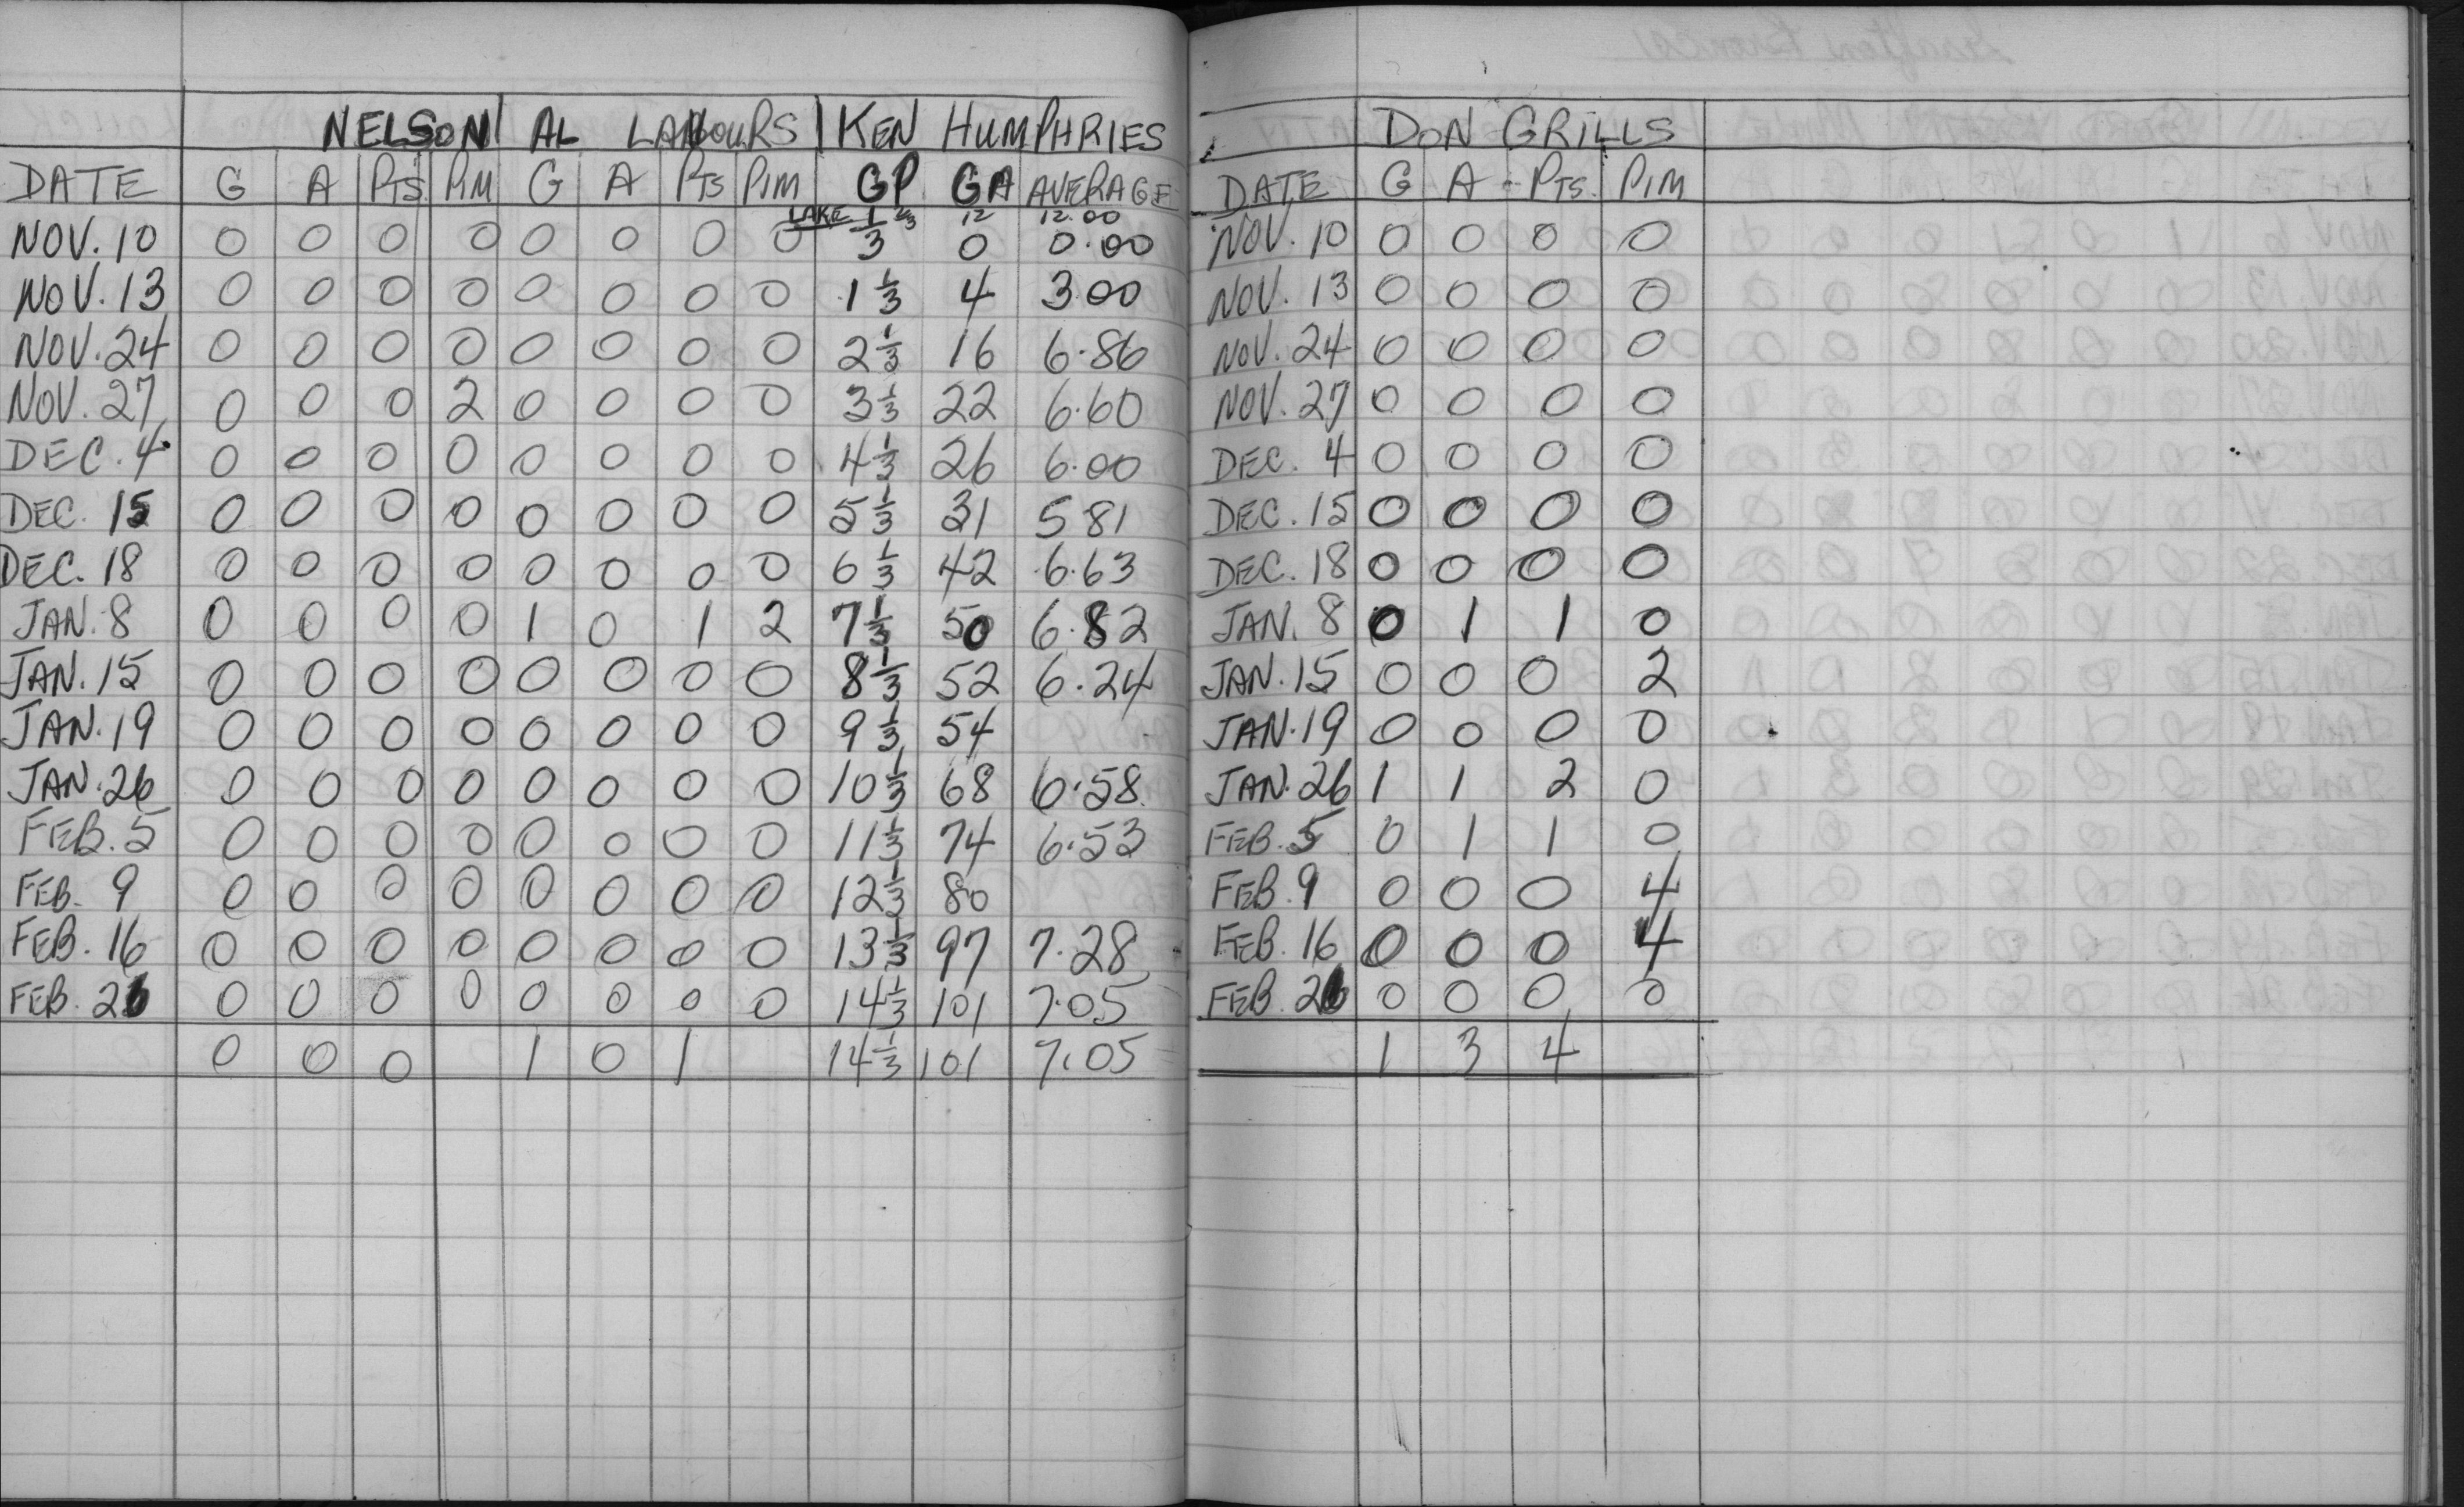 NELSON AL LABOURS KEN HUMPHRIES
DATE G A PTS PIM G A PTS PIM GP GA AVERAGE
LAKE 1 2/3 12 12.00
NOV. 10 0 0 0 0 0 0 0 0 1/3 0 0.00
NOV. 13 0 0 0 0 0 0 0 0 1 1/3 4 3.00
NOV. 24 0 0 0 0 0 0 0 0 2 1/3 16 6.86
NOV. 27 0 0 0 2 0 0 0 0 3 1/3 22 6.60
DEC. 4 0 0 0 0 0 0 0 0 4 1/3 26 6.00
DEC. 15 0 0 0 0 0 0 0 0 5 1/3 31 5 81
DEC. 18 0 0 0 0 0 0 0 0 6 1/3 42 6.63
JAN. 8 0 0 0 0 1 0 1 2 7 1/3 50 6.82
JAN. 15 0 0 0 0 0 0 0 0 8 1/3 52 6.24
JAN. 19 0 0 0 0 0 0 0 0 9 1/3 54
JAN. 26 0 0 0 0 0 0 0 0 10 1/3 68 6.58
FEB. 5 0 0 0 0 0 0 0 0 11 1/3 74 6.53
FEB. 9 0 0 0 0 0 0 0 0 12 1/3 80
FEB. 16 0 0 0 0 0 0 0 0 13 1/3 97 7.28
FEB. 26 0 0 0 0 0 0 0 0 14 1/3 101 7.05
0 0 0 1 0 1 14 1/3 101 7.05
DON GRILLS
DATE G A PTS. PIM
NOV. 10 0 0 0 0
NOV. 13 0 0 0 0
NOV. 24 0 0 0 0
NOV. 27 0 0 0 0
DEC. 4 0 0 0 0
DEC. 15 0 0 0 0
DEC. 18 0 0 0 0
JAN. 8 0 1 1 0
JAN. 15 0 0 0 2
JAN. 19 0 0 0 0
JAN. 26 1 1 2 0
FEB. 5 0 1 1 0
FEB. 9 0 0 0 4
FEB. 16 0 0 0 4
FEB. 26 0 0 0 0
1 3 4